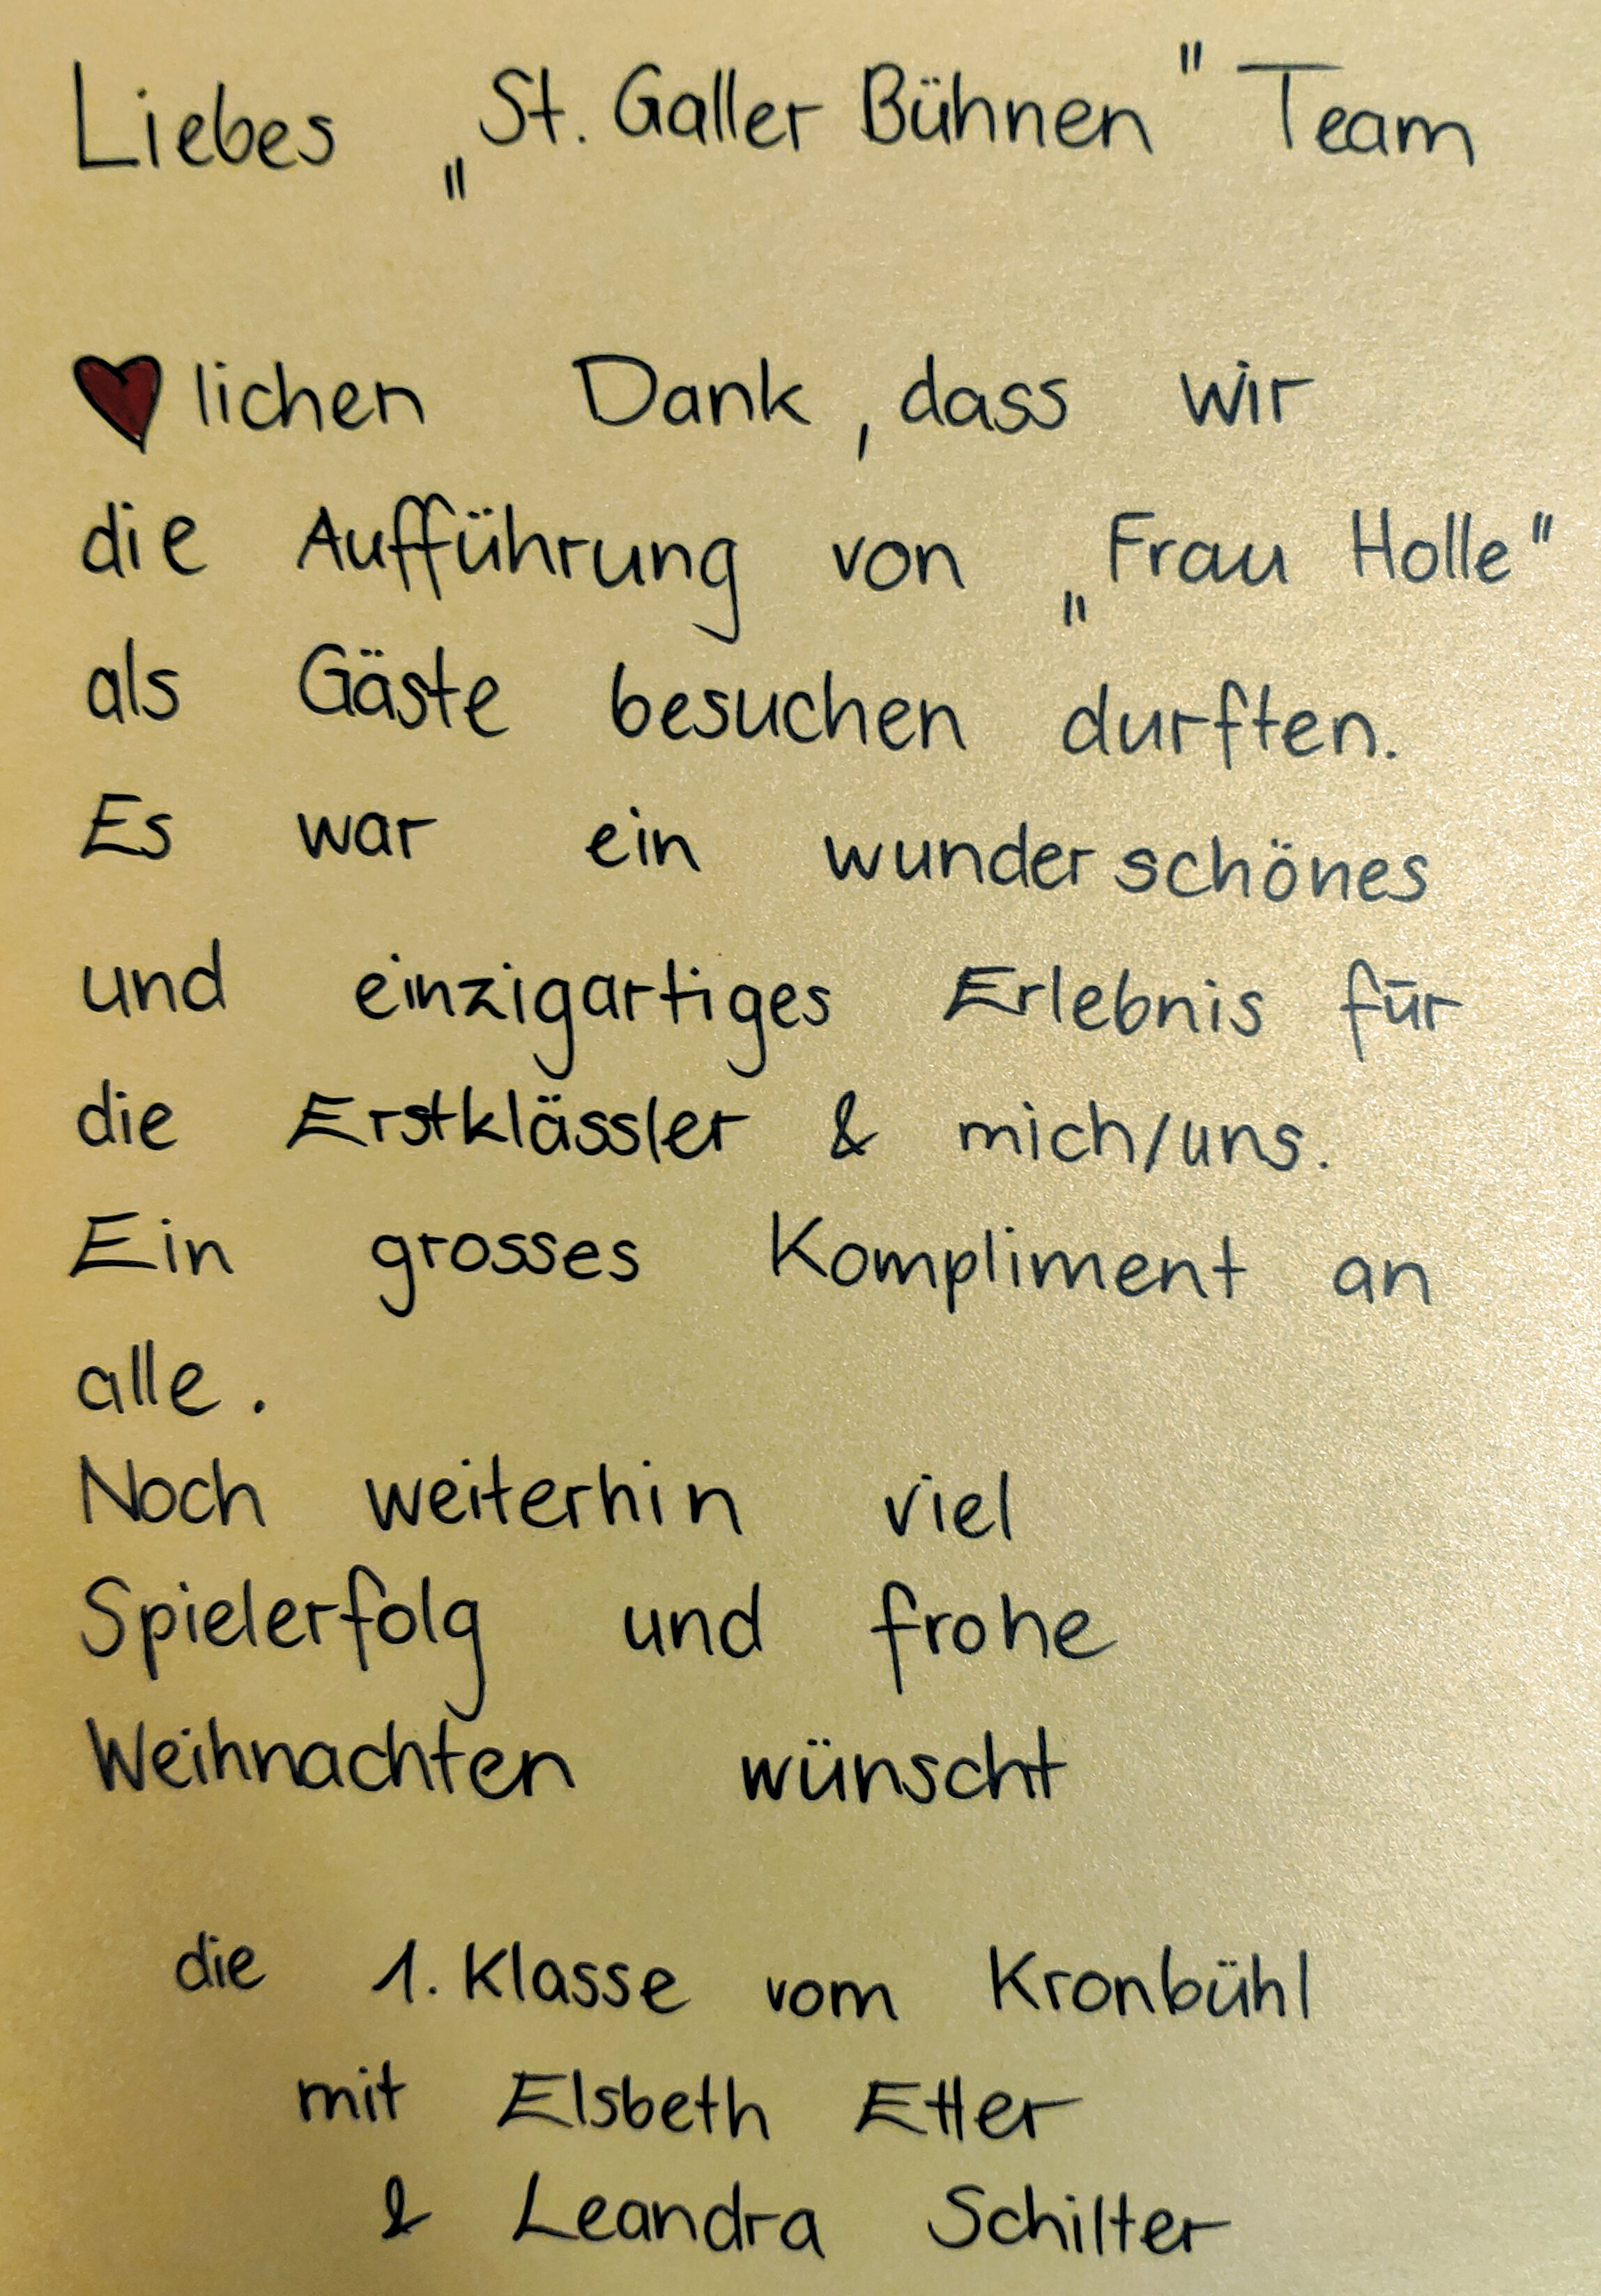 Liebes „St. Galler Bühnen" Team
♥lichen Dank, dass wir
die Aufführung von „Frau Holle"
als Gäste besuchen durften.
Es war ein wunderschönes
und einzigartiges Erlebnis für
die Erstklässler & mich/uns.
Ein grosses Kompliment an
alle.
Noch weiterhin viel
Spielerfolg und frohe
Weihnachten wünscht
die 1. Klasse vom Kronbühl
mit Elsbeth Etter
& Leandra Schilter